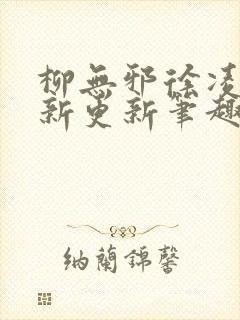 柳無邪徐凌
新更新筆趣
納蘭錦馨